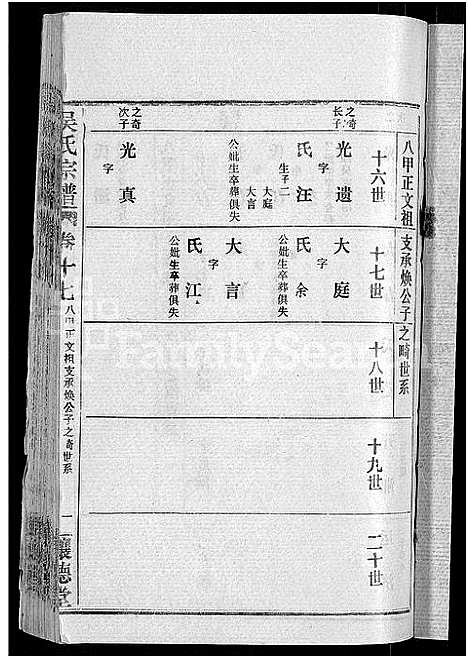 八甲正文祖支承煥公子之畸世系
十六世
之奇長子
光遺
字
氏汪
生子二
大庭
大言
公妣生卒葬俱失
之奇次子
光真
字
十七世
大庭
字
氏余
公妣生卒葬俱失
大言
字
氏江
公妣生卒葬俱失
十八世
十九世
二十世
吳氏宗譜
卷十七
八甲正文祖支承煥公子之奇世系
一
讓德堂
FamilySearch